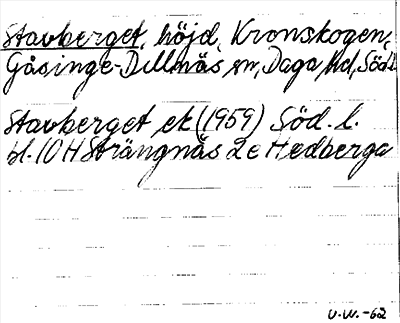 Stavberget, höjd, Kronskogen,
Gåsinge-Dillnäs sn, Daga hd, Södl.
Stavberget ek (1959) Söd. l.
bl. 10 H Strängnäs 2 e Hedberga
U.W.-62